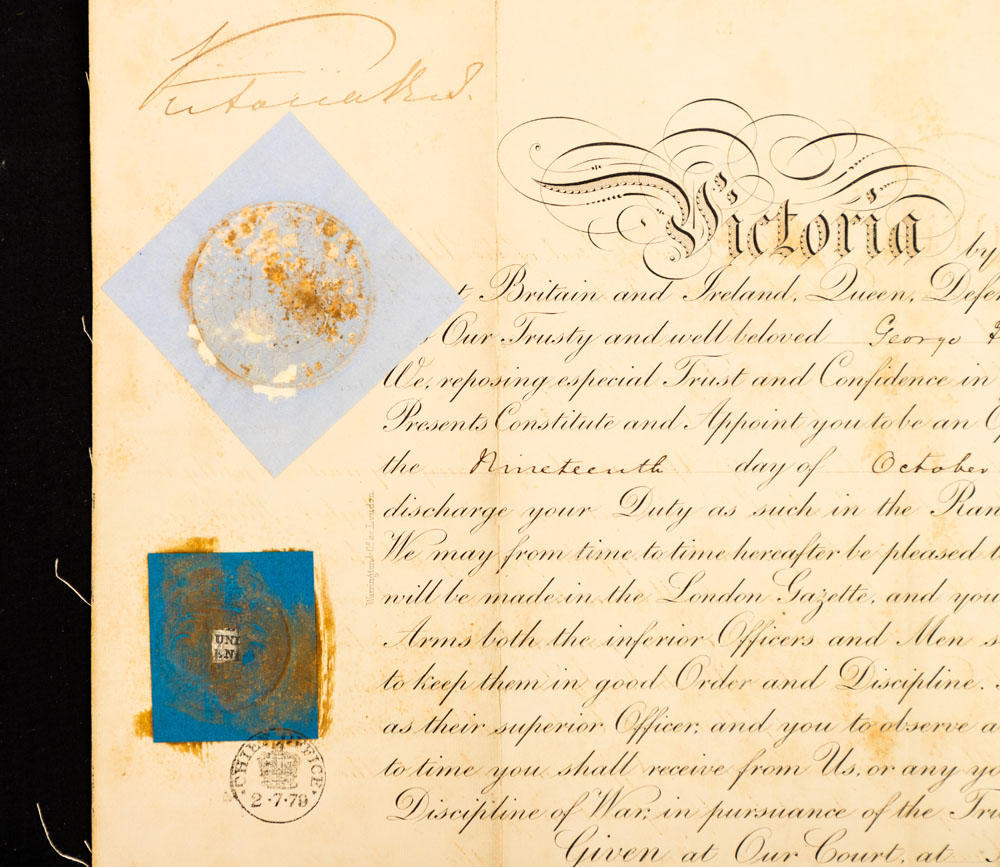 Victoria R I.
Victoria by
Britain and Ireland, Queen, Defen
Our Trusty and well beloved George
We, reposing especial Trust and Confidence in
Presents Constitute and Appoint you to be an O
the Nineteenth day of October
discharge your Duty as such in the Ran
We may from time to time hereafter be pleased t
will be made in the London Gazette, and you
Arms both the inferior Officers and Men s
to keep them in good Order and Discipline.
as their superior Officer; and you to observe a
to time you shall receive from Us, or any yo
Discipline of War; in pursuance of the Tru
Given at Our Court, at
UNI
CHIEF OFFICE
2·7·79